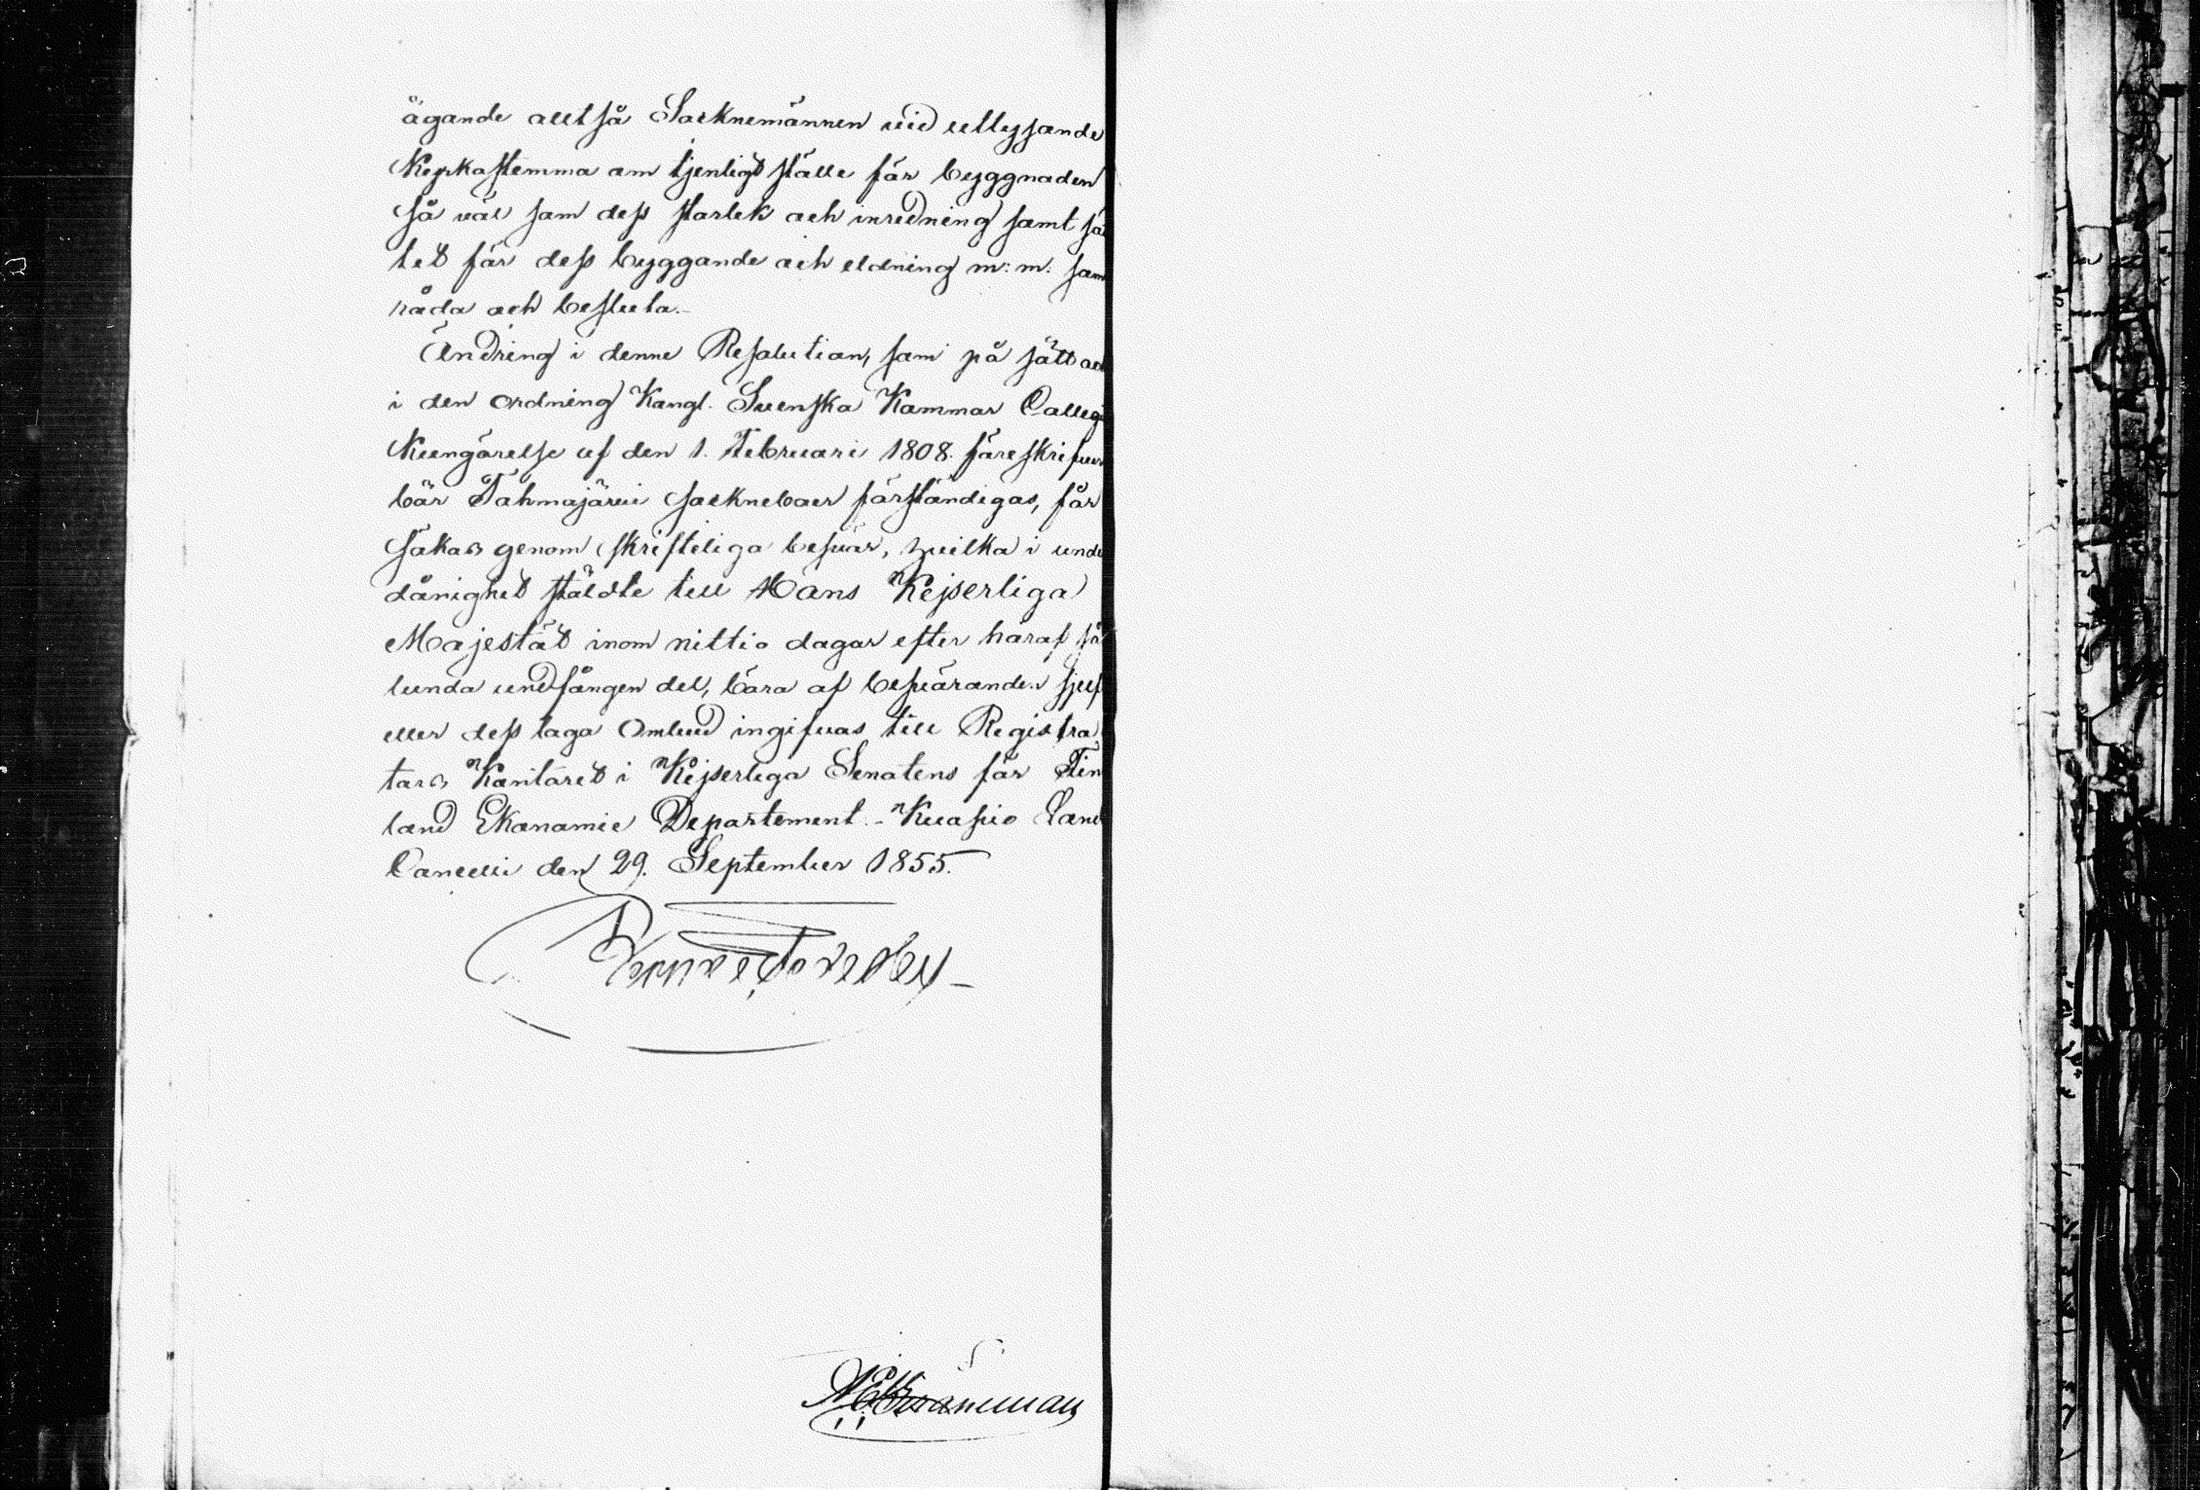 ägande alltså Socknemännen vid utlysande
Kyrkostemma om tjenligt ställe för byggnaden
så väl som dess storlek och inredning samt sä
tet för dess byggande och eldning m: m: sam
råda och besluta.-
Ändring i denne Resolution, som på sätt och
i den ordning Kongl. Svenska Kammar Collegi
Kungörelse af den 1. Februari 1808. föreskrifver
bör Tohmajärvi sockneboer förständigas, får
sökas genom skrifteliga besvär, hvilka i unde
dånighet stäldte till Hans Kejserliga
Majestät inom nittio dagar efter häraf så
lunda undfången del, böra af besvärande sjelf
eller dess laga Ombud ingifvas till Registra
tors Kontoret i Kejserliga Senatens för Fin
land Ekonomie Departement.- Kuopio Land
Cancelli den 29. September 1855.